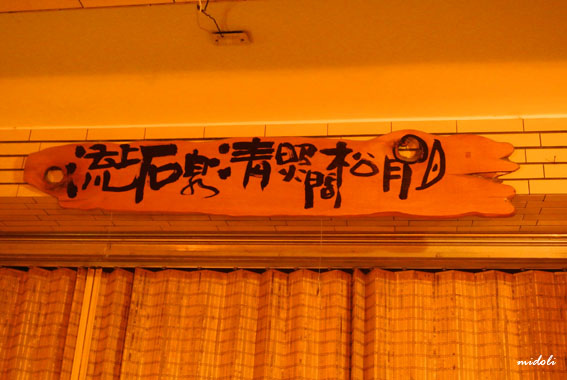 明月松間照清泉石上流
midoli